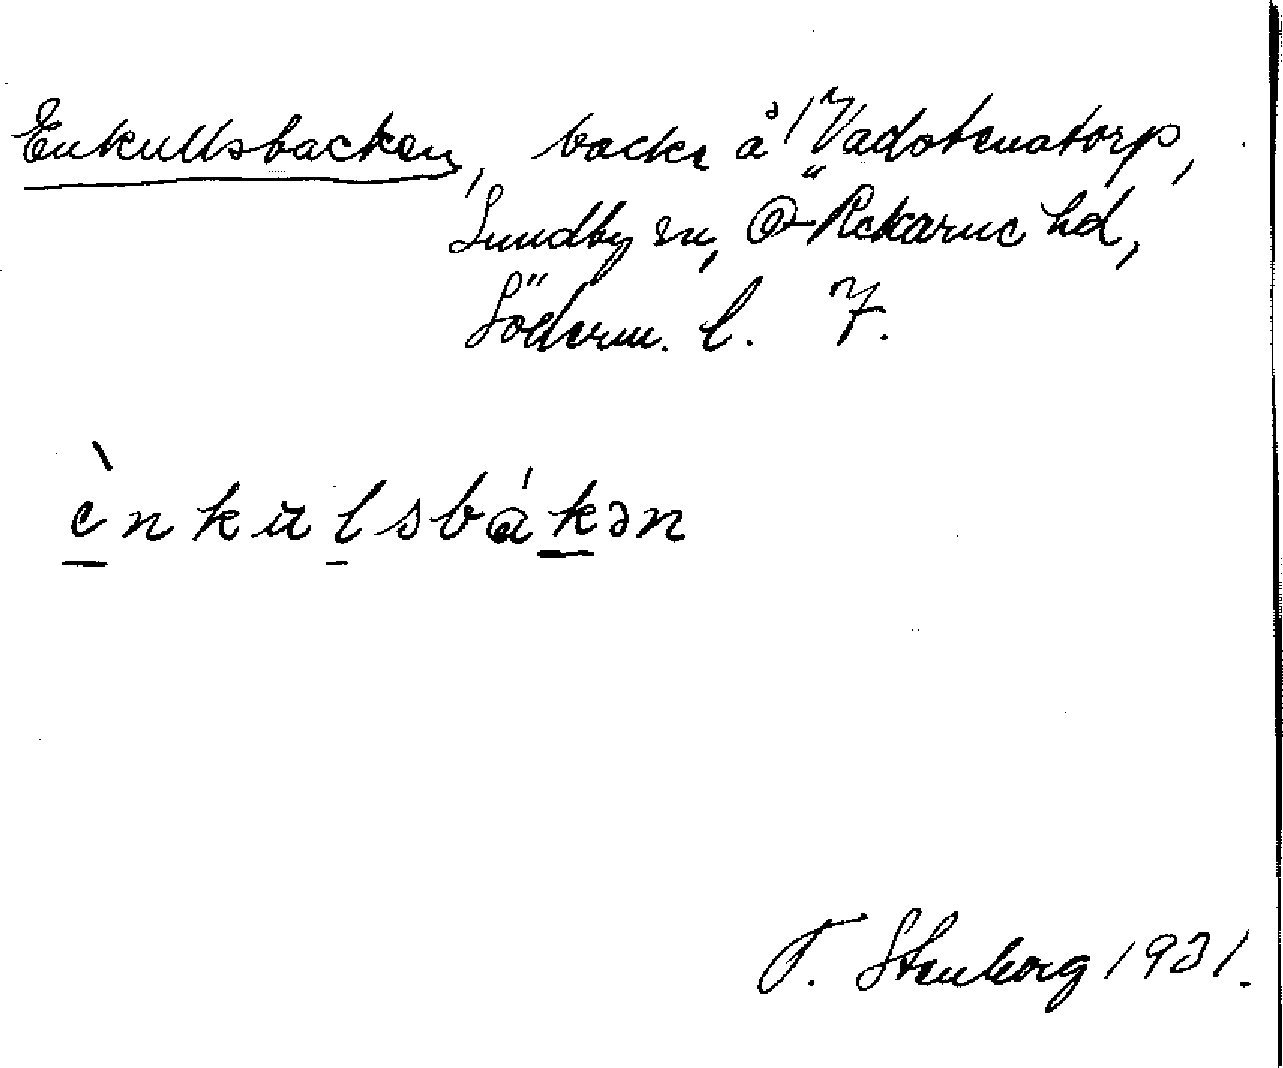 Enkullsbacken, backe å 1/7 Vadstenatorp,
Lundby sn, Ö Rekarne hd,
Söderm. l. 7.
ènkulsbákən
T. Stenborg 1931.